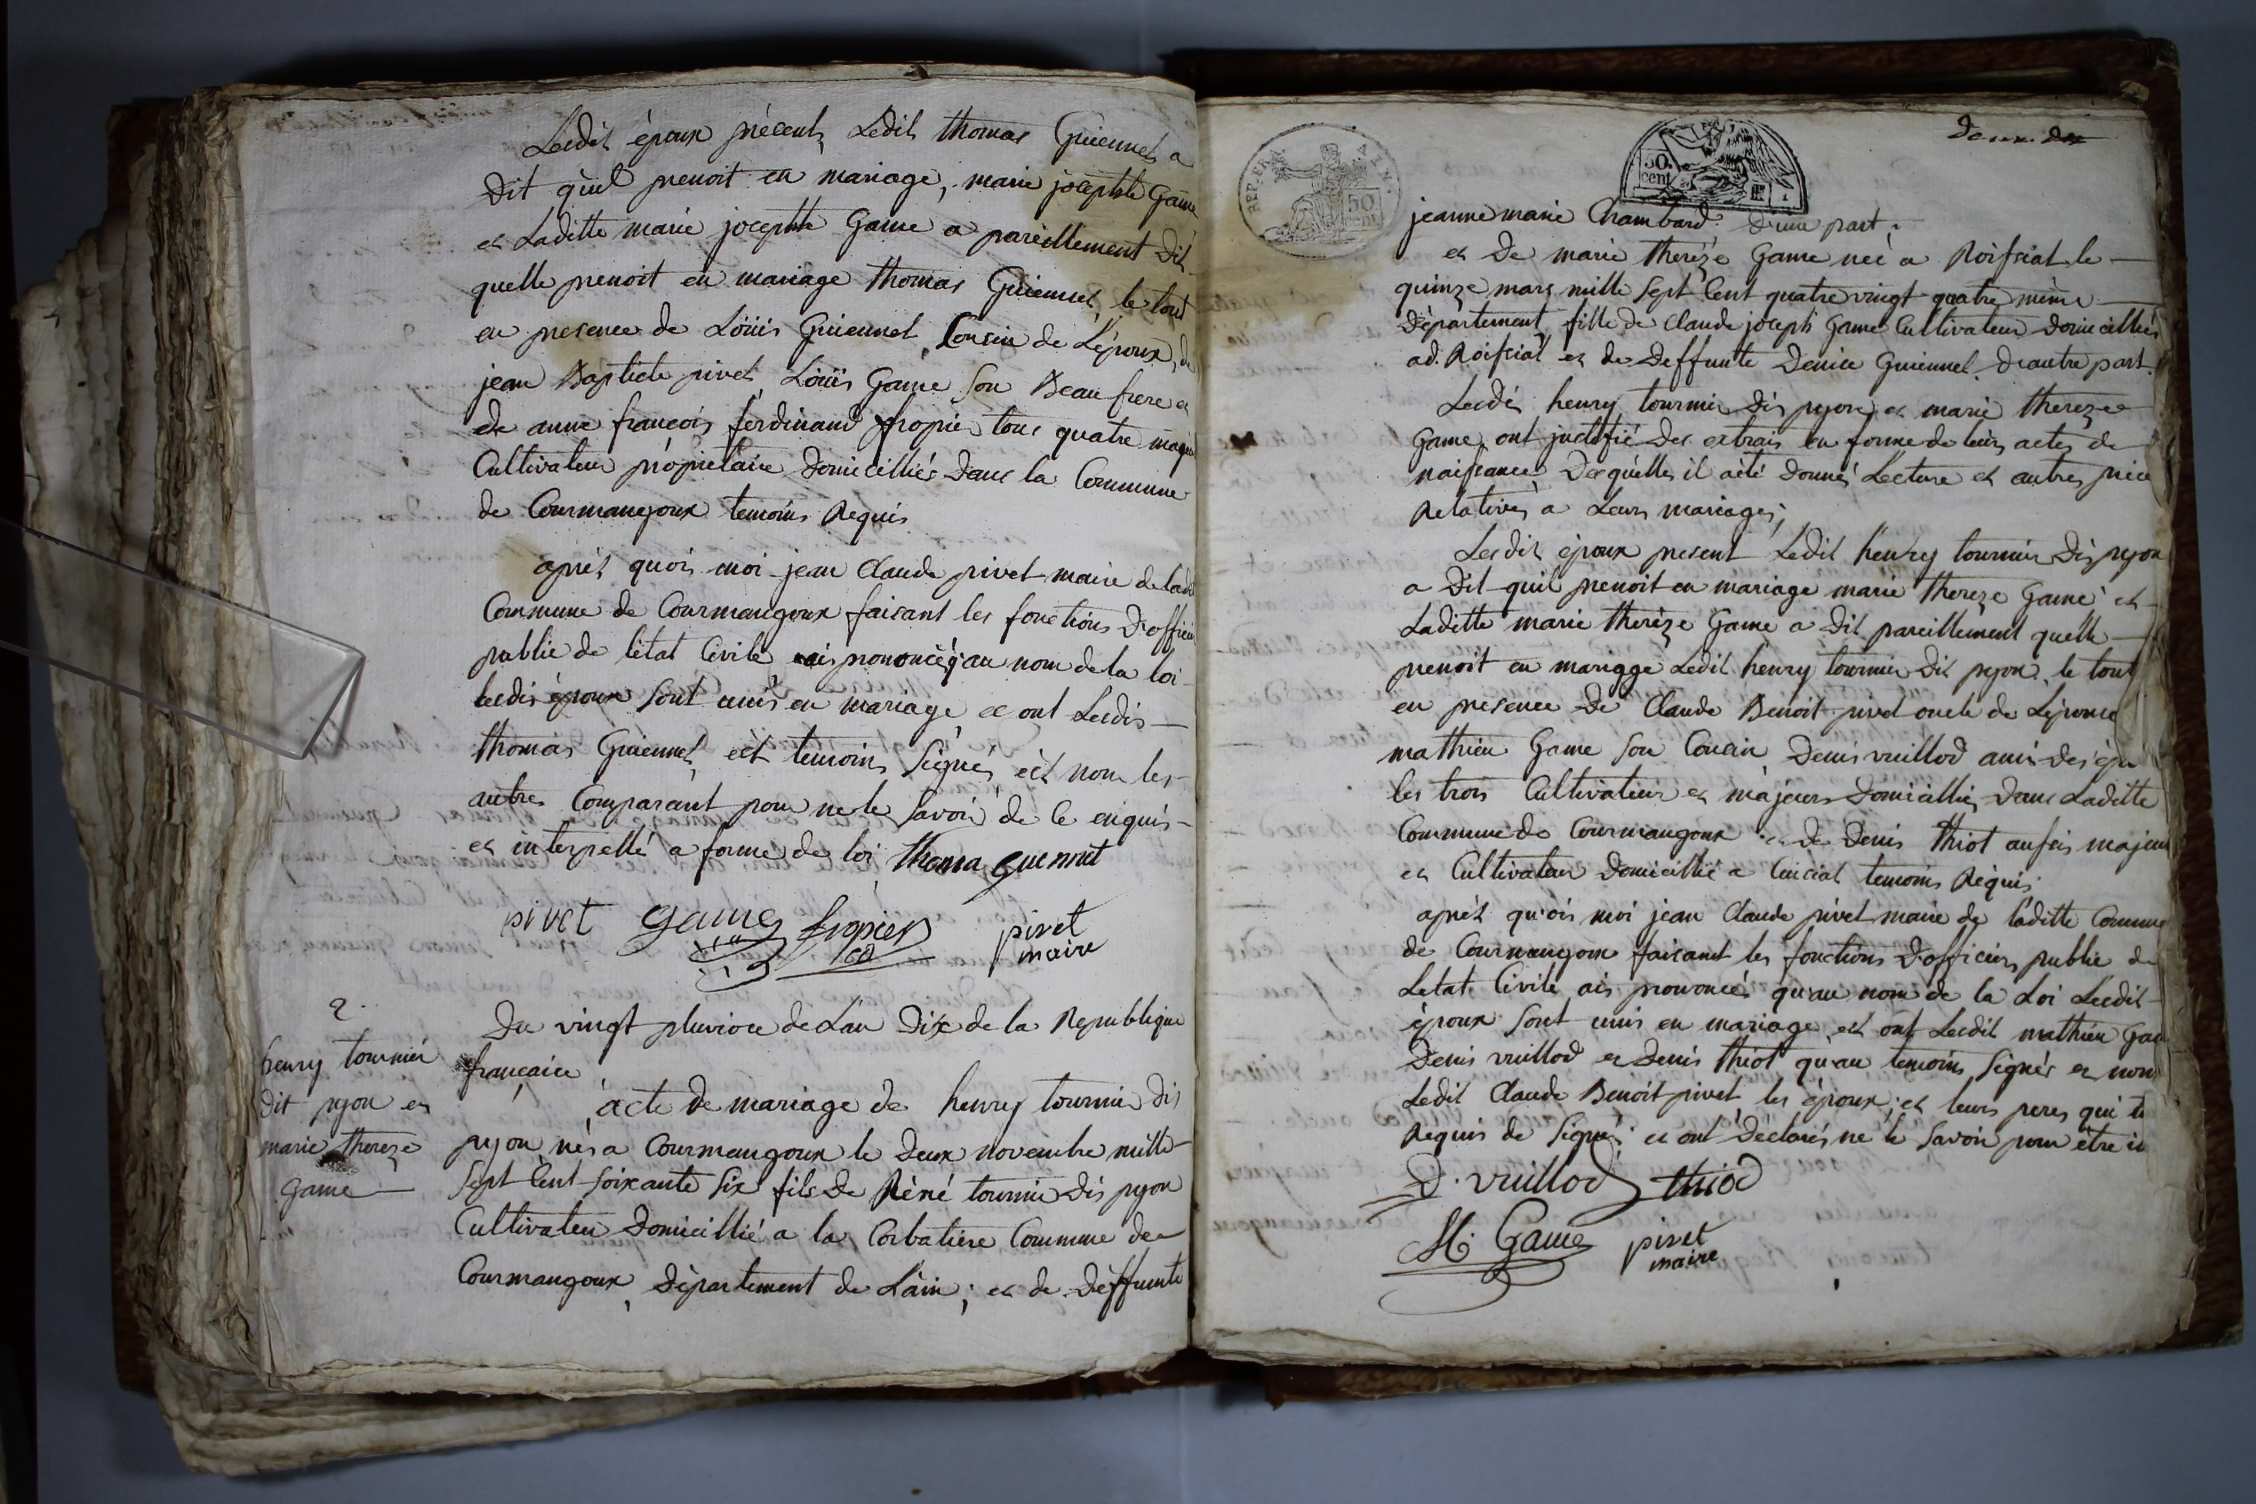 Lesdit époux présent, Ledit thomas Guiennet a
dit qúil prenoit en mariage, marie josephte Game
et Laditte marie josephte Game a pareillement dit
quelle prenoit en mariage thomas Guiennet, le tout
en presence de Löüis Guiennet, Cousin de L'époux, de
jean Baptiste pivet, Löüis Game son Beau frere et
de anne françois ferdinand fropier tous quatre majeu
Cultivateur propriétaire domicilliés dans la Commune
de Courmangoux temoins Requis
aprés quois moi jean Claude pivet maire de ladit
Commune de Courmangoux faisant les fonctions d'officie
public de létat Civile ais prononcé q'au nom de la loi
lesdis époux sont unis en mariage et ont Lesdis
thomas Guiennet, èt temoins signés, èt non les
autres Comparant pour ne le savoir de ce enquis
et interpellé a forme de loi thoma guennet
pivet game fropier pivet
maire
2.
henry tournier
dit pyon et
marie thereze
Game
Du vingt pluviose de L'an dix de la Republique
françaice
acte de mariage de henry tournier dis
pyon nés a Courmangoux le deux novembre mille
sept Cent soixante six fils de Réné tournier dis pyon
Cultivateur domicillié a la Corbatiere Commune de
Courmangoux, département de L'ain; et de déffunte
REP. FRA
50
cent
50.
cent
jeanne marie Chambard d'une part.
et de marie theréze Game née a Roissiat le
quinze mars mille sept Cent quatre vingt quatre même
département, fille de Claude joseph Game Cultivateur domicilliés
ad. Roissiat et de deffunte denice Guiennet d'autre part.
Lesdis henry tournier dis pyon et marie thereze
Game, ont justifié des extrais en forme de leurs actes de
naissance, desquelles il a été donnés Lecture et autres piéce
Relatives a Leurs mariages;
Lesdit époux present Ledit henry tournier dis pyon
a dit quil prenoit en mariage marie thereze Game et
Laditte marie theréze Game a dit pareillement quelle
prenoit en mariage Ledit henry tournier dit pyon, le tout
en presence de Claude Benoit pivet oncle de L'épouse
mathieu Game son Cousin, Denis vuillod ami des épo
les trois Cultivateur et majeurs domicilliés dans Laditte
Commune de Courmangoux et de Denis thiot aussis majeur
et Cultivateur domicillié a Cuiciat temoins Réquis.
aprés qu'ois moi jean Claude pivet maire de laditte Commune
de Courmangoux faisant les fonctions d'officiers public de
L'etat Civile ais prononcés qu'au nom de la Loi Lesdit
époux sont unis en mariage et ont Lesdit mathieu Gam
Denis vuillod et denis thiot qu'au temoins signés et non
Ledit Claude Benoit pivet les époux, et leurs peres qui
Requis de signés; et ont déclarés ne le savoir pour être
D. vuillod thiod
M. Game pivet
maire